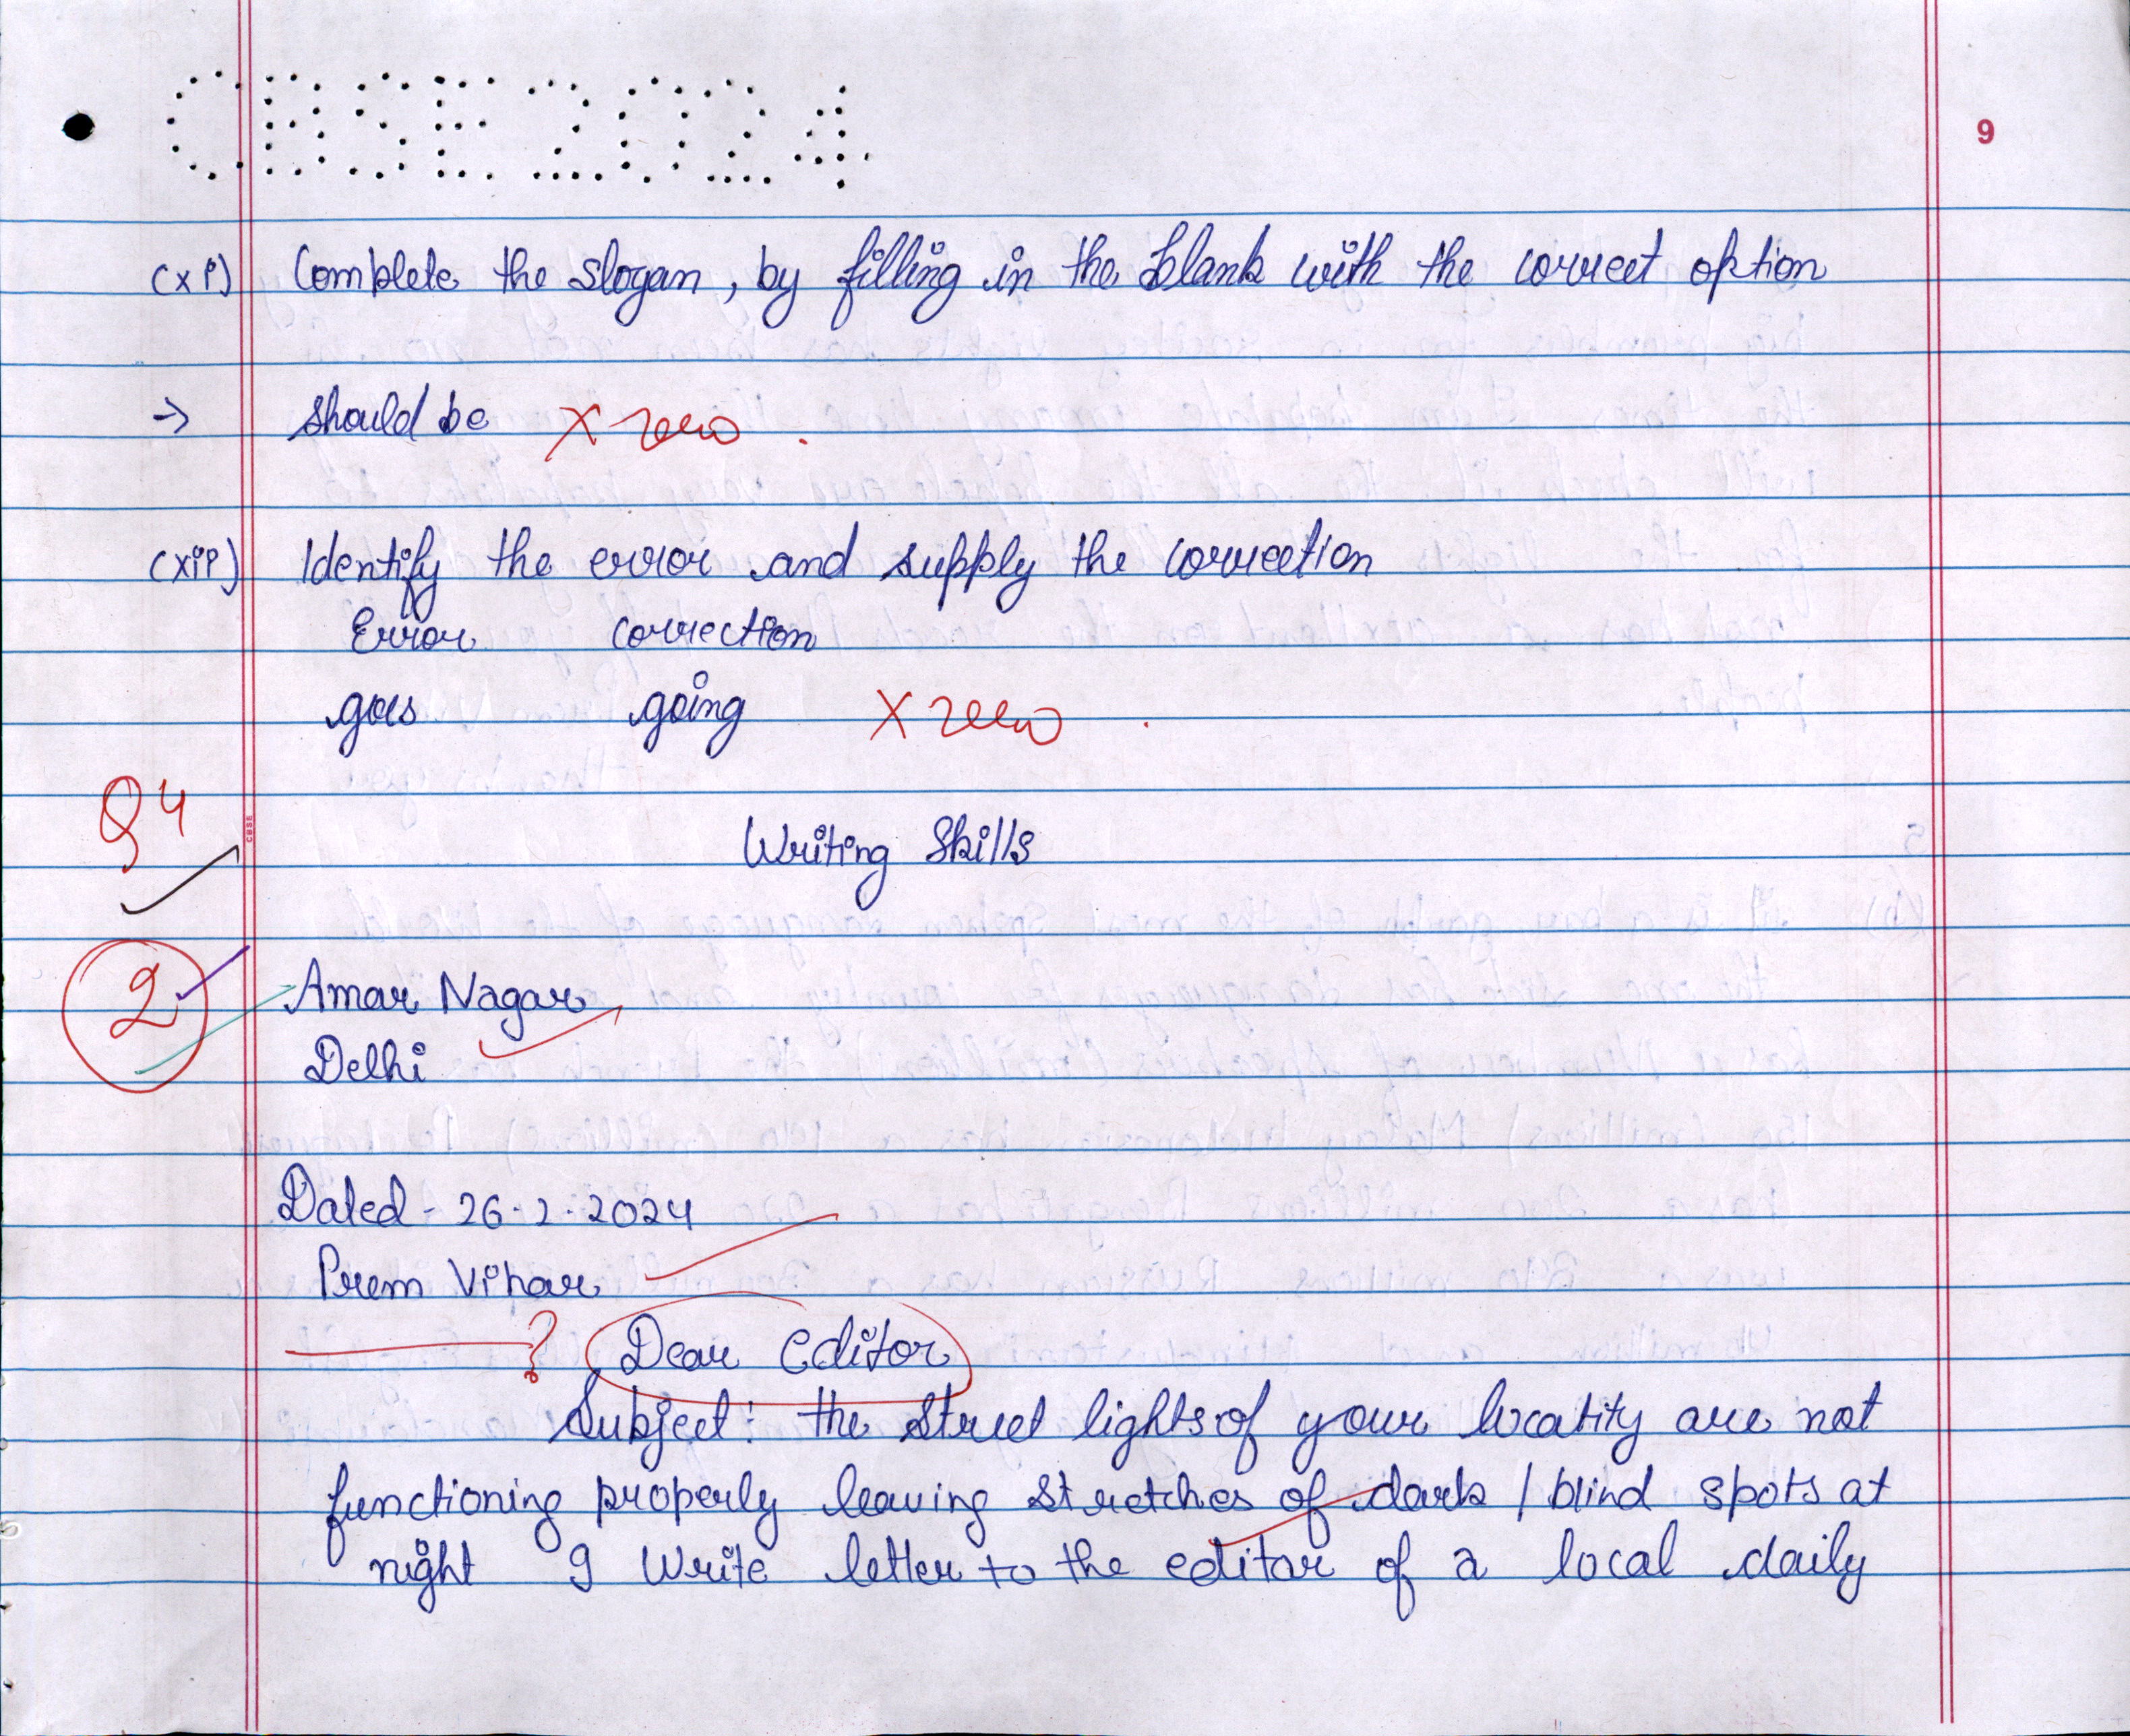 CBSE 2024
9
(xi) Complete the slogan, by filling in the blank with the correct option
→ should be X zero.
(xii) Identify the error and supply the correction
Error correction
goes going X zero
Q4
CBSE
Writing Skills
2
Amar Nagar
Delhi
Dated - 26.2.2024
Prem Vihar
? Dear Editor
Subject: the Street lights of your locatity are not
functioning properly leaving stretches of dark / blind spots at
night I Write letter to the editor of a local daily